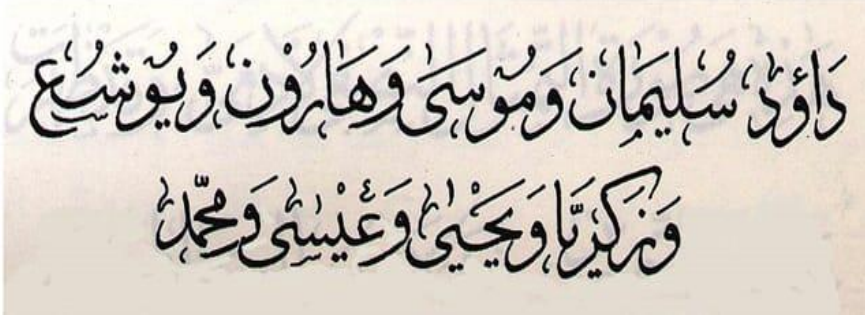 دَاوٗد سُلَيمَان وَمُوسَى وَهَارُوْن وَيُوشُع
وَزَكَرِيَّا وَيَحْيٰى وَعِيْسٰى وَمُحَمَّد